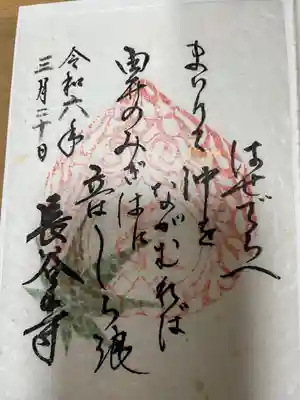 はせでらへ
まいりて沖を
ながむれば
由井のみぎはに
立はしら浪
長谷寺
令和六年
三月三十日